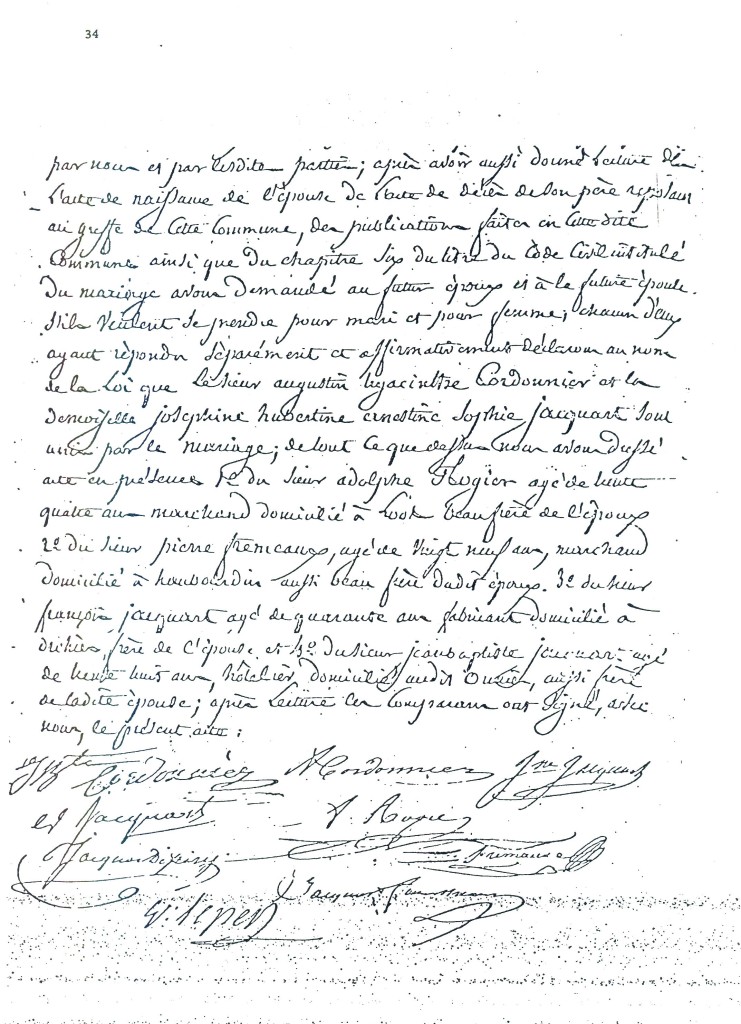 34
par nous et par lesdites parties; après avoir aussi donné lecture de
l'acte de naissance de l'épouse de l'acte de décès de son père reposans
au greffe de cette Commune, des publications faites en cette dite
Commune ainsi que du chapitre six du titre du Code Civil intitulé
du mariage avons demandé au futur époux et à la future épouse
s'ils veulent se prendre pour mari et pour femme; chacun d'eux
ayant répondu séparément et affirmativement déclarons au nom
de la Loi que le sieur augustin hyacinthe Cordonnier et la
demoiselle joséphine hubertine ernestine sophie jacquart sont
unis par le mariage; de tout ce que dessus nous avons dressé
acte en présence 1º du sieur adolphe Rogier agé de trente
quatre ans marchand domicilié à Loos beau frère de l'époux
2º du sieur pierre fremeaux, agé de vingt neuf ans, marchand
domicilié à haubourdin aussi beau frère dudit époux. 3º du sieur
françois jacquart agé de quarante ans fabricant domicilié à
frère de l'épouse et 4º du sieur jean baptiste jacquart agé
de trente huit ans, hôtelier, domicilié audit aussi frère
de ladite épouse; après lecture les Comparans ont signé, avec
nous, le présent acte:
Cordonnier A Cordonnier Jne Jacquart
Jacquart A. Rogie
Jacquart Fremaux
Jacquart